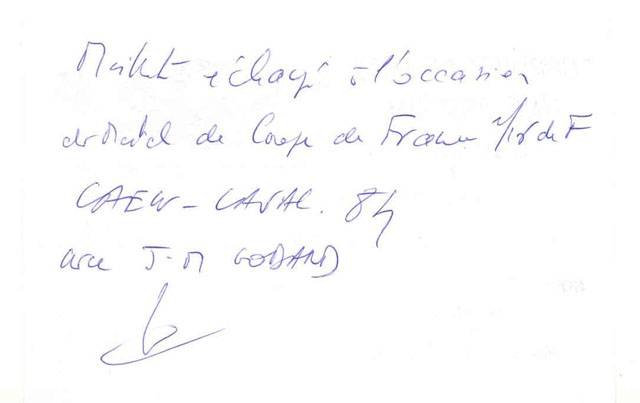 Maillot échangé à l'occasion
du Match de Coupe de France 1/16 de F
CAEN - LAVAL. 84
avec J-M GODARD